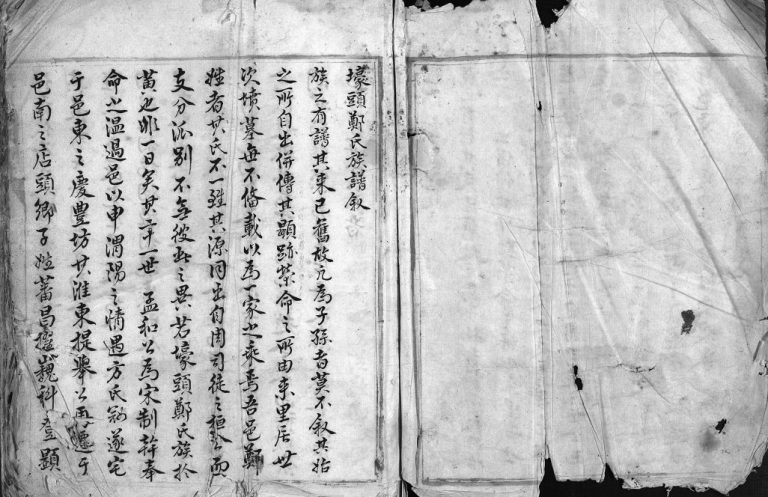 壕頭鄭氏族譜叙
族之有譜其来已舊故凢為子孫者莫不叙其始
之所自出併傳其顕跡榮命之所由来里居世
次墳墓無不俻載以為一家之乘焉吾邑鄭
姓者其氏不一緃其源同出自周司徒之桓公而
支分派别不無彼此之異若壕頭鄭氏族於
黄也非一日矣其二十一世孟和公為宋制幹奉
命之温過邑以申渭陽之情遇方氏遂宅
于邑東之慶豊坊其淮東提舉公再遷于
邑南之店頭鄉子姓蕃昌擢巍科登顕